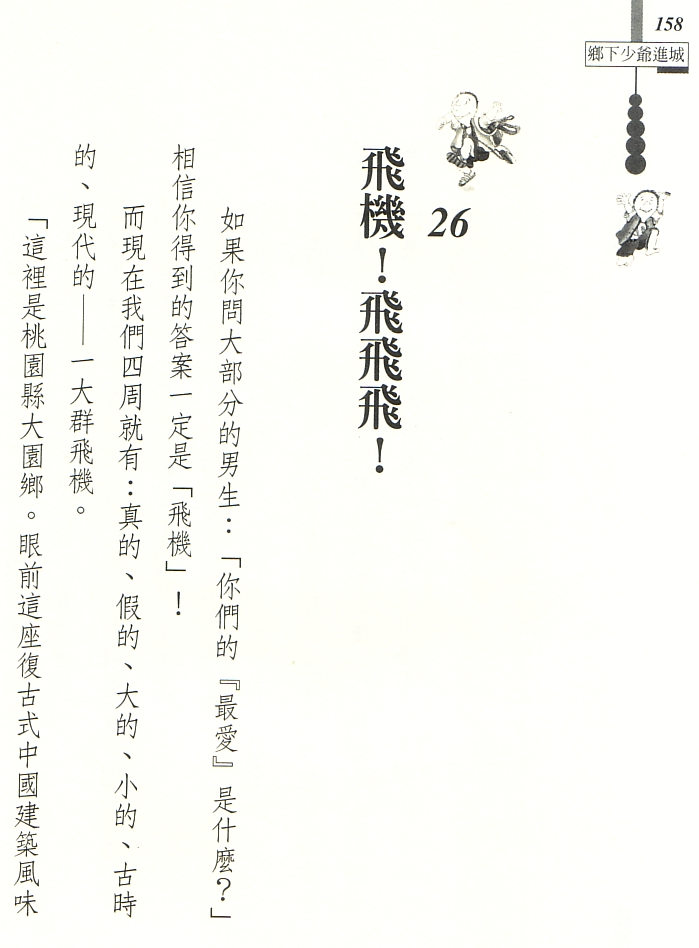 158
鄉下少爺進城
26
飛機！飛飛飛！
如果你問大部分的男生：「你們的『最愛』是什麼？」
相信你得到的答案一定是「飛機」！
而現在我們四周就有：真的、假的、大的、小的、古時
的、現代的——一大群飛機。
「這裡是桃園縣大園鄉。眼前這座復古式中國建築風味